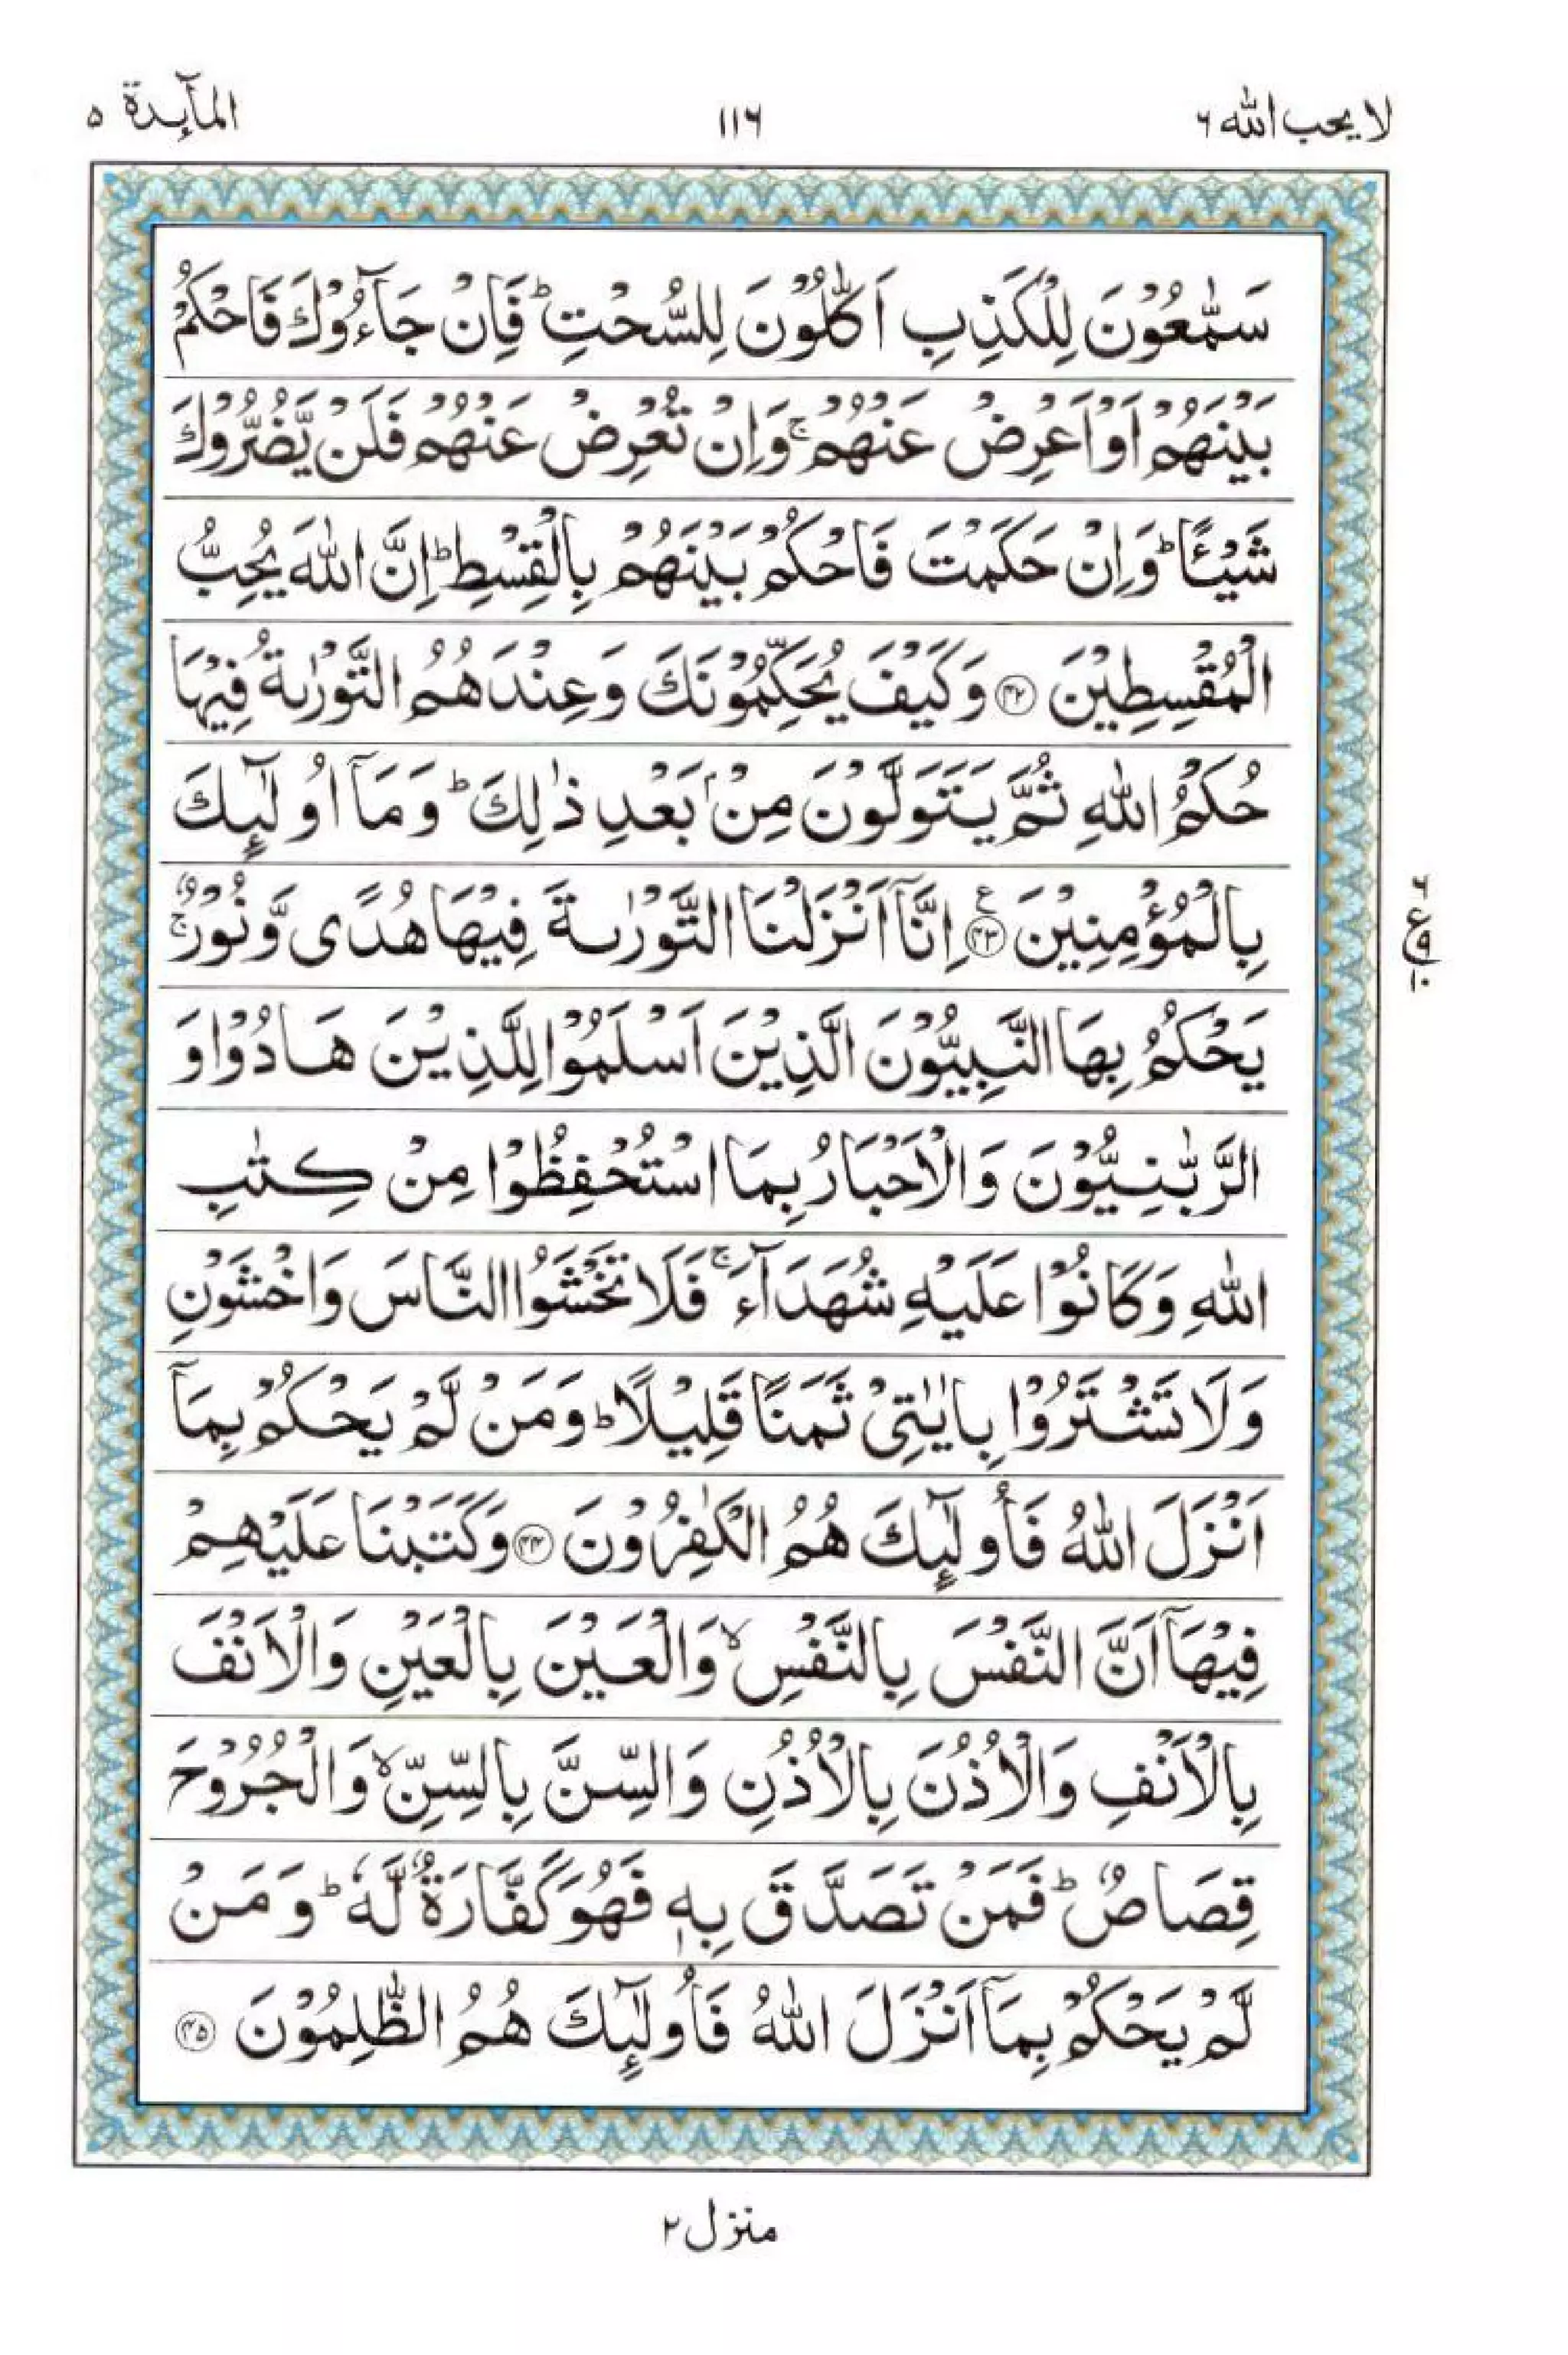 لا يحب الله ٦
١١٦
المآئدة ٥
سَمّٰعُوْنَ لِلْكَذِبِ اَكّٰلُوْنَ لِلسُّحْتِ ؕ فَاِنْ جَآءُوْكَ فَاحْكُمْ
بَيْنَهُمْ اَوْ اَعْرِضْ عَنْهُمْ ۚ وَاِنْ تُعْرِضْ عَنْهُمْ فَلَنْ يَّضُرُّوْكَ
شَيْئًا ؕ وَاِنْ حَكَمْتَ فَاحْكُمْ بَيْنَهُمْ بِالْقِسْطِ ؕ اِنَّ اللّٰهَ يُحِبُّ
الْمُقْسِطِيْنَ ﴿۴۲﴾ وَكَيْفَ يُحَكِّمُوْنَكَ وَعِنْدَهُمُ التَّوْرٰىةُ فِيْهَا
حُكْمُ اللّٰهِ ثُمَّ يَتَوَلَّوْنَ مِنْۢ بَعْدِ ذٰلِكَ ؕ وَمَاۤ اُولٰٓئِكَ
بِالْمُؤْمِنِيْنَ ﴿۴۳﴾ ع اِنَّاۤ اَنْزَلْنَا التَّوْرٰىةَ فِيْهَا هُدًى وَّنُوْرٌ ۚ
ع
٩
١٠
يَحْكُمُ بِهَا النَّبِيُّوْنَ الَّذِيْنَ اَسْلَمُوْا لِلَّذِيْنَ هَادُوْا وَ
الرَّبّٰنِيُّوْنَ وَالْاَحْبَارُ بِمَا اسْتُحْفِظُوْا مِنْ كِتٰبِ
اللّٰهِ وَكَانُوْا عَلَيْهِ شُهَدَآءَ ۚ فَلَا تَخْشَوُا النَّاسَ وَاخْشَوْنِ
وَلَا تَشْتَرُوْا بِاٰيٰتِيْ ثَمَنًا قَلِيْلًا ؕ وَمَنْ لَّمْ يَحْكُمْ بِمَاۤ
اَنْزَلَ اللّٰهُ فَاُولٰٓئِكَ هُمُ الْكٰفِرُوْنَ ﴿۴۴﴾ وَكَتَبْنَا عَلَيْهِمْ
فِيْهَاۤ اَنَّ النَّفْسَ بِالنَّفْسِ ۙ وَالْعَيْنَ بِالْعَيْنِ وَالْاَنْفَ
بِالْاَنْفِ وَالْاُذُنَ بِالْاُذُنِ وَالسِّنَّ بِالسِّنِّ ۙ وَالْجُرُوْحَ
قِصَاصٌ ؕ فَمَنْ تَصَدَّقَ بِهٖ فَهُوَ كَفَّارَةٌ لَّهٗ ؕ وَمَنْ
لَّمْ يَحْكُمْ بِمَاۤ اَنْزَلَ اللّٰهُ فَاُولٰٓئِكَ هُمُ الظّٰلِمُوْنَ ﴿۴۵﴾
منزل ٢